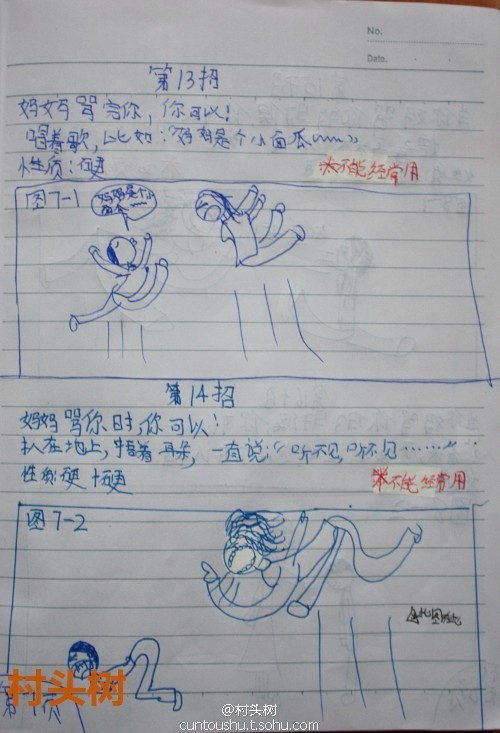 No.
Date.
第13招
妈妈骂完你，你可以！
唱着歌，比如：“妈妈是个小面瓜~~~”
性质：硬
※不能经常用
图7-1
妈妈是个小面瓜~~
第14招
妈妈骂你时，你可以！
趴在地上，捂着耳朵，一直说：“听不见，听不见……”
性质 硬 十硬
※不能经常用
图7-2
村头树
@村头树
cuntoushu.t.sohu.com